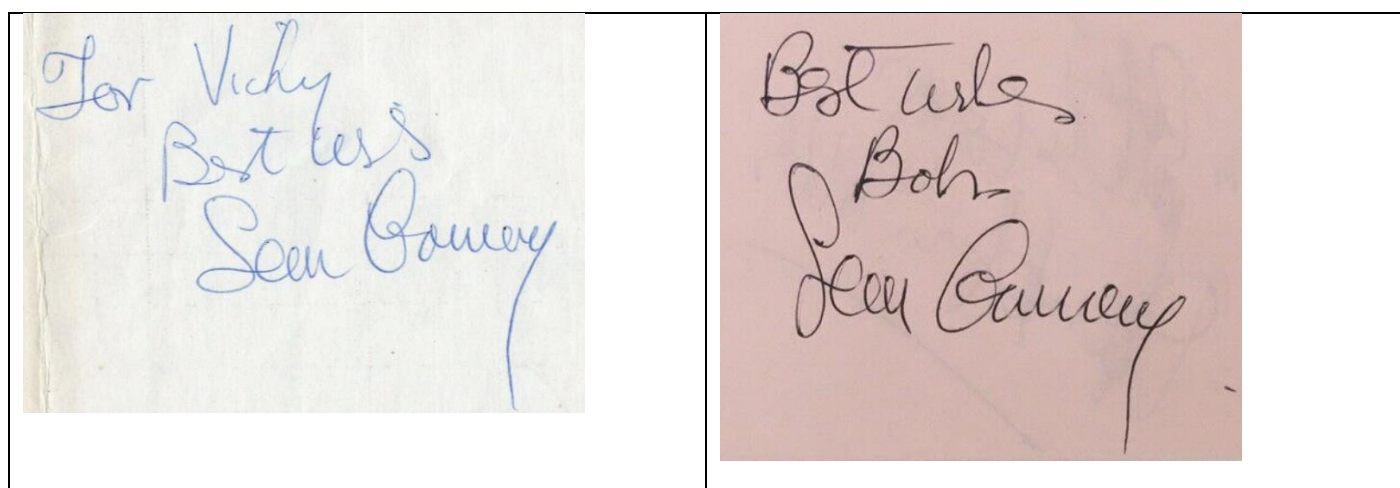 For Vicky
Best wishes
Sean Connery
Best wishes
Bob
Sean Connery